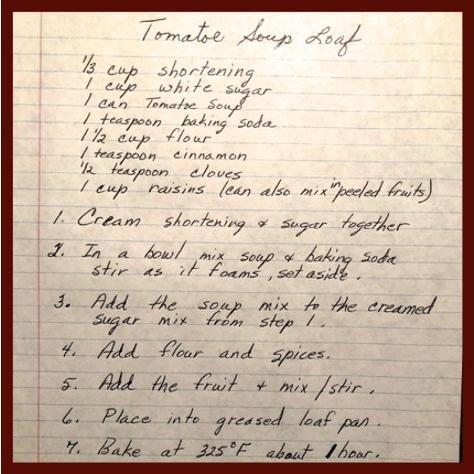 Tomatoe Soup Loaf
1/3 cup shortening
1 cup white sugar
1 can Tomatoe Soup
1 teaspoon baking soda
1 1/2 cup flour
1 teaspoon cinnamon
1/2 teaspoon cloves
1 cup raisins (can also mix in peeled fruits)
1. Cream shortening & sugar together
2. In a bowl mix soup & baking soda
stir as it foams, set aside.
3. Add the soup mix to the creamed
sugar mix from step 1.
4. Add flour and spices.
5. Add the fruit & mix/stir.
6. Place into greased loaf pan.
7. Bake at 325°F about 1 hour.